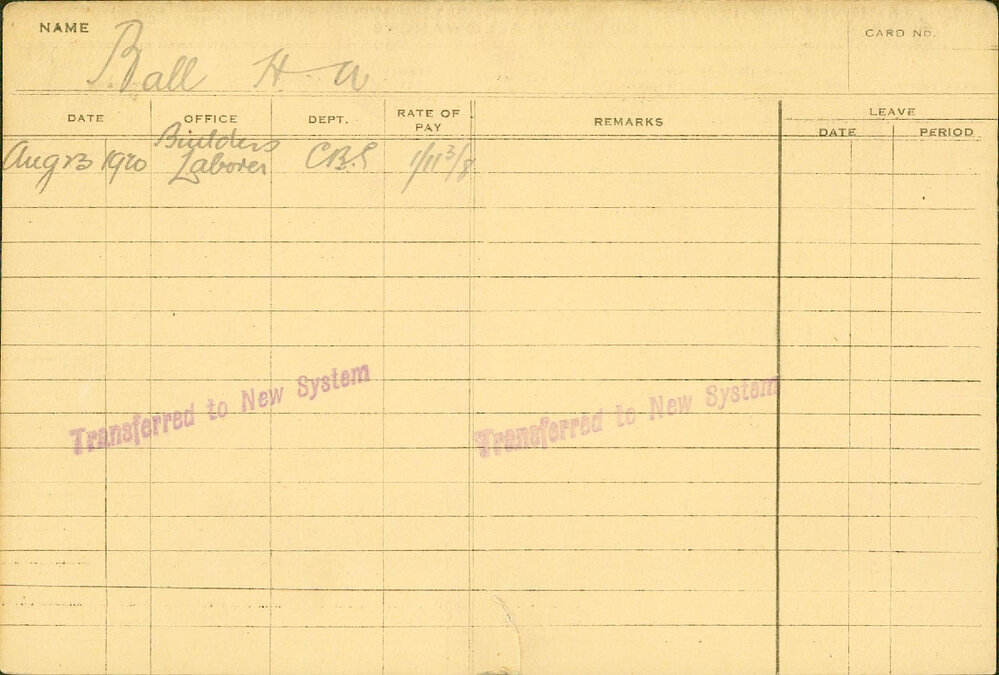 NAME
Ball H W
CARD NO.
DATE OFFICE DEPT. RATE OF PAY REMARKS LEAVE
DATE PERIOD
Builders
Aug 23 1920 Laborer
Transferred to New System Transferred to New System